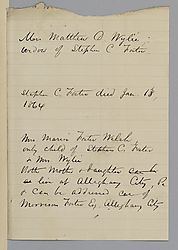 Mrs Matthew D. Wylie
widow of Stephen C. Foster
Stephen C. Foster died Jan 13
1864
Mrs Marion Foster Welch,
only child of Stephen C. Foster
& Mrs Wylie
Both Mother & daughter
live at Alleghany City, Pa
& can be addressed care of
Morrison Foster Esq, Alleghany City